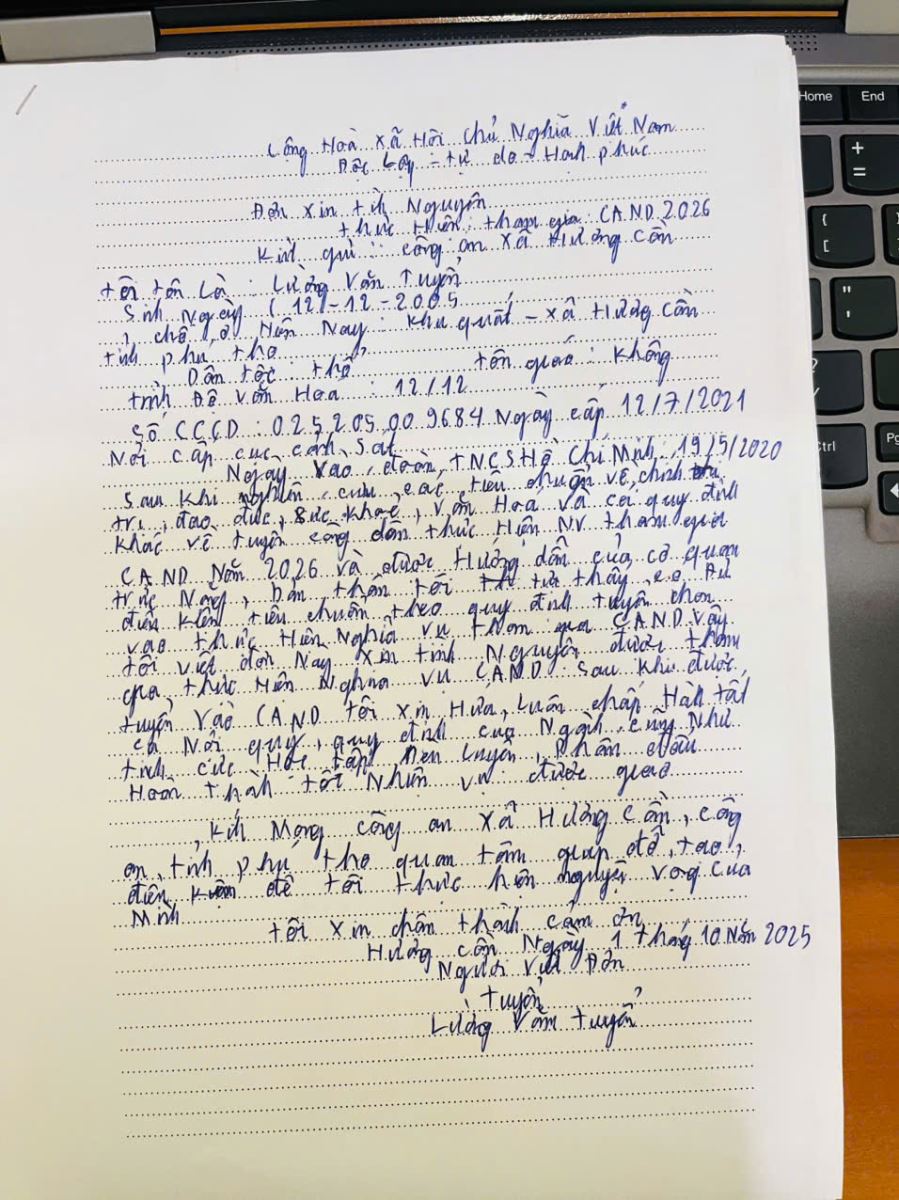 Cộng Hoà Xã Hôi Chủ Nghĩa Việt Nam
Độc Lập - tự do - Hanh phúc
Đơn xin tình Nguyên
thức Hiên tham gia CAND 2026
Kính gửi : công an xã Hương Cần
tôi tên Là : Lường Văn Tuyển
Sinh Ngày (12-12-2005
chỗ ở Hiên Nay : Khu quất - xã Hương Cần
tỉnh phú thọ
Dân tộc thổ tôn giaó : Không
trình Độ văn Hoá : 12/12
Số CCCD : 025205009684 Ngày cấp 12/7/2021
Nơi cấp cục cảnh Sat
Ngày vào đoàn TNCSHồ Chí Minh : 19/5/2020
Sau khi nghiên cưu các tiêu chuẩn về chính
trị, đao đức, sức khoẻ, văn Hoá và cá quy đinh
khác về tuyển công dân thức Hiên NV tham gia
CAND Năm 2026 và được Hướng dẫn của cơ quan
trức Năng, bản thân tôi tư thấy co Đủ
điều kiên tiêu chuẩn theo quy đinh tuyển chon
vao thức Hiên Nghĩa vu tham gia CAND vậy
tôi viết đơn này xin tình Nguyên được tham
gia thức Hiên Nghĩa vụ CAND. Sau khi được
tuyển vào CAND tôi xin Hưá Luôn chấp Hành tất
cả Nôi quy, quy đinh của Ngành cũng Như
tính cực Hoc tập Ren Luyên, phấn đấu
Hoàn thành tốt Nhiên vụ được giao
Kính Mong công an xã Hương Cần, công
an tỉnh phú tho quan tâm giup đỡ, tao
điên kiên để tôi thực hiên nguyên vọg của
Mình
tôi xin chân thành cảm ơn
Hương cần Ngày 1 tháng 10 Năm 2025
Người Viết Đơn
tuyển
Lường Văn tuyển
Home
End
+
=
{
[
"
'
?
/
Ctrl